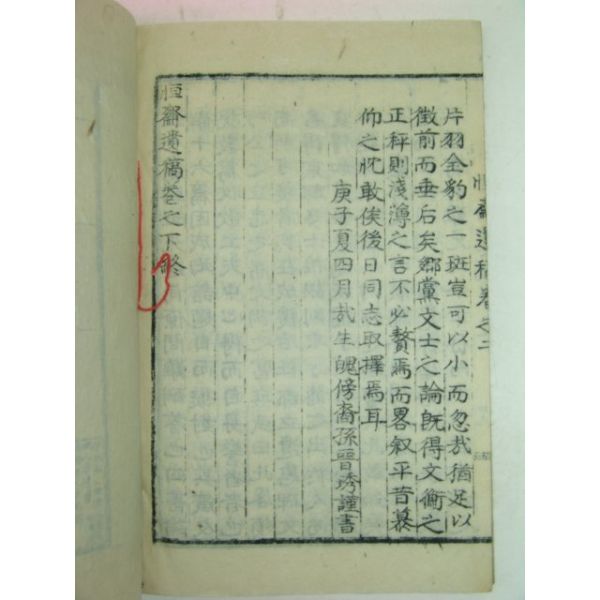 片羽全豹之一斑豈可以小而忽哉猶足以
徵前而垂后矣鄕黨文士之論旣得文衡之
正秤則淺薄之言不必贅焉而畧叙平昔慕
仰之忱敢俟後日同志取擇焉耳
庚子夏四月哉生魄傍裔孫晉琇謹書
恒齋遺稿卷之下終
恒齋遺稿卷之二